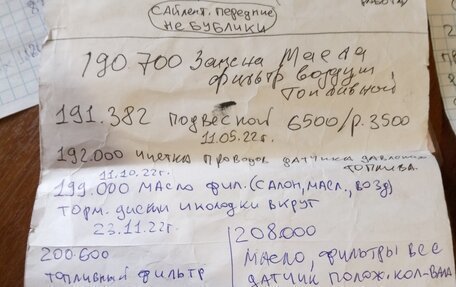 САЙЛЕНТ. ПЕРЕДНИЕ
НЕ БУБЛИКИ
190 700 Замена Масла
фильтр воздуш,
топливной
191.382 подвесной 6500/р.3500
11.05.22г.
192.000 щетка проводов датчика давления
топлива.
11.10.22г.
199.000 МАСЛО ФИЛ.(САЛОН, МАСЛ., ВОЗД)
ТОРМ. ДИСКИ И КОЛОДКИ ВКРУГ
23.11.22г.
200.600
ТОПЛИВНЫЙ ФИЛЬТР
208.000
МАСЛО, ФИЛЬТРЫ ВСЕ
ДАТЧИК ПОЛОЖ. КОЛ-ВАЛА